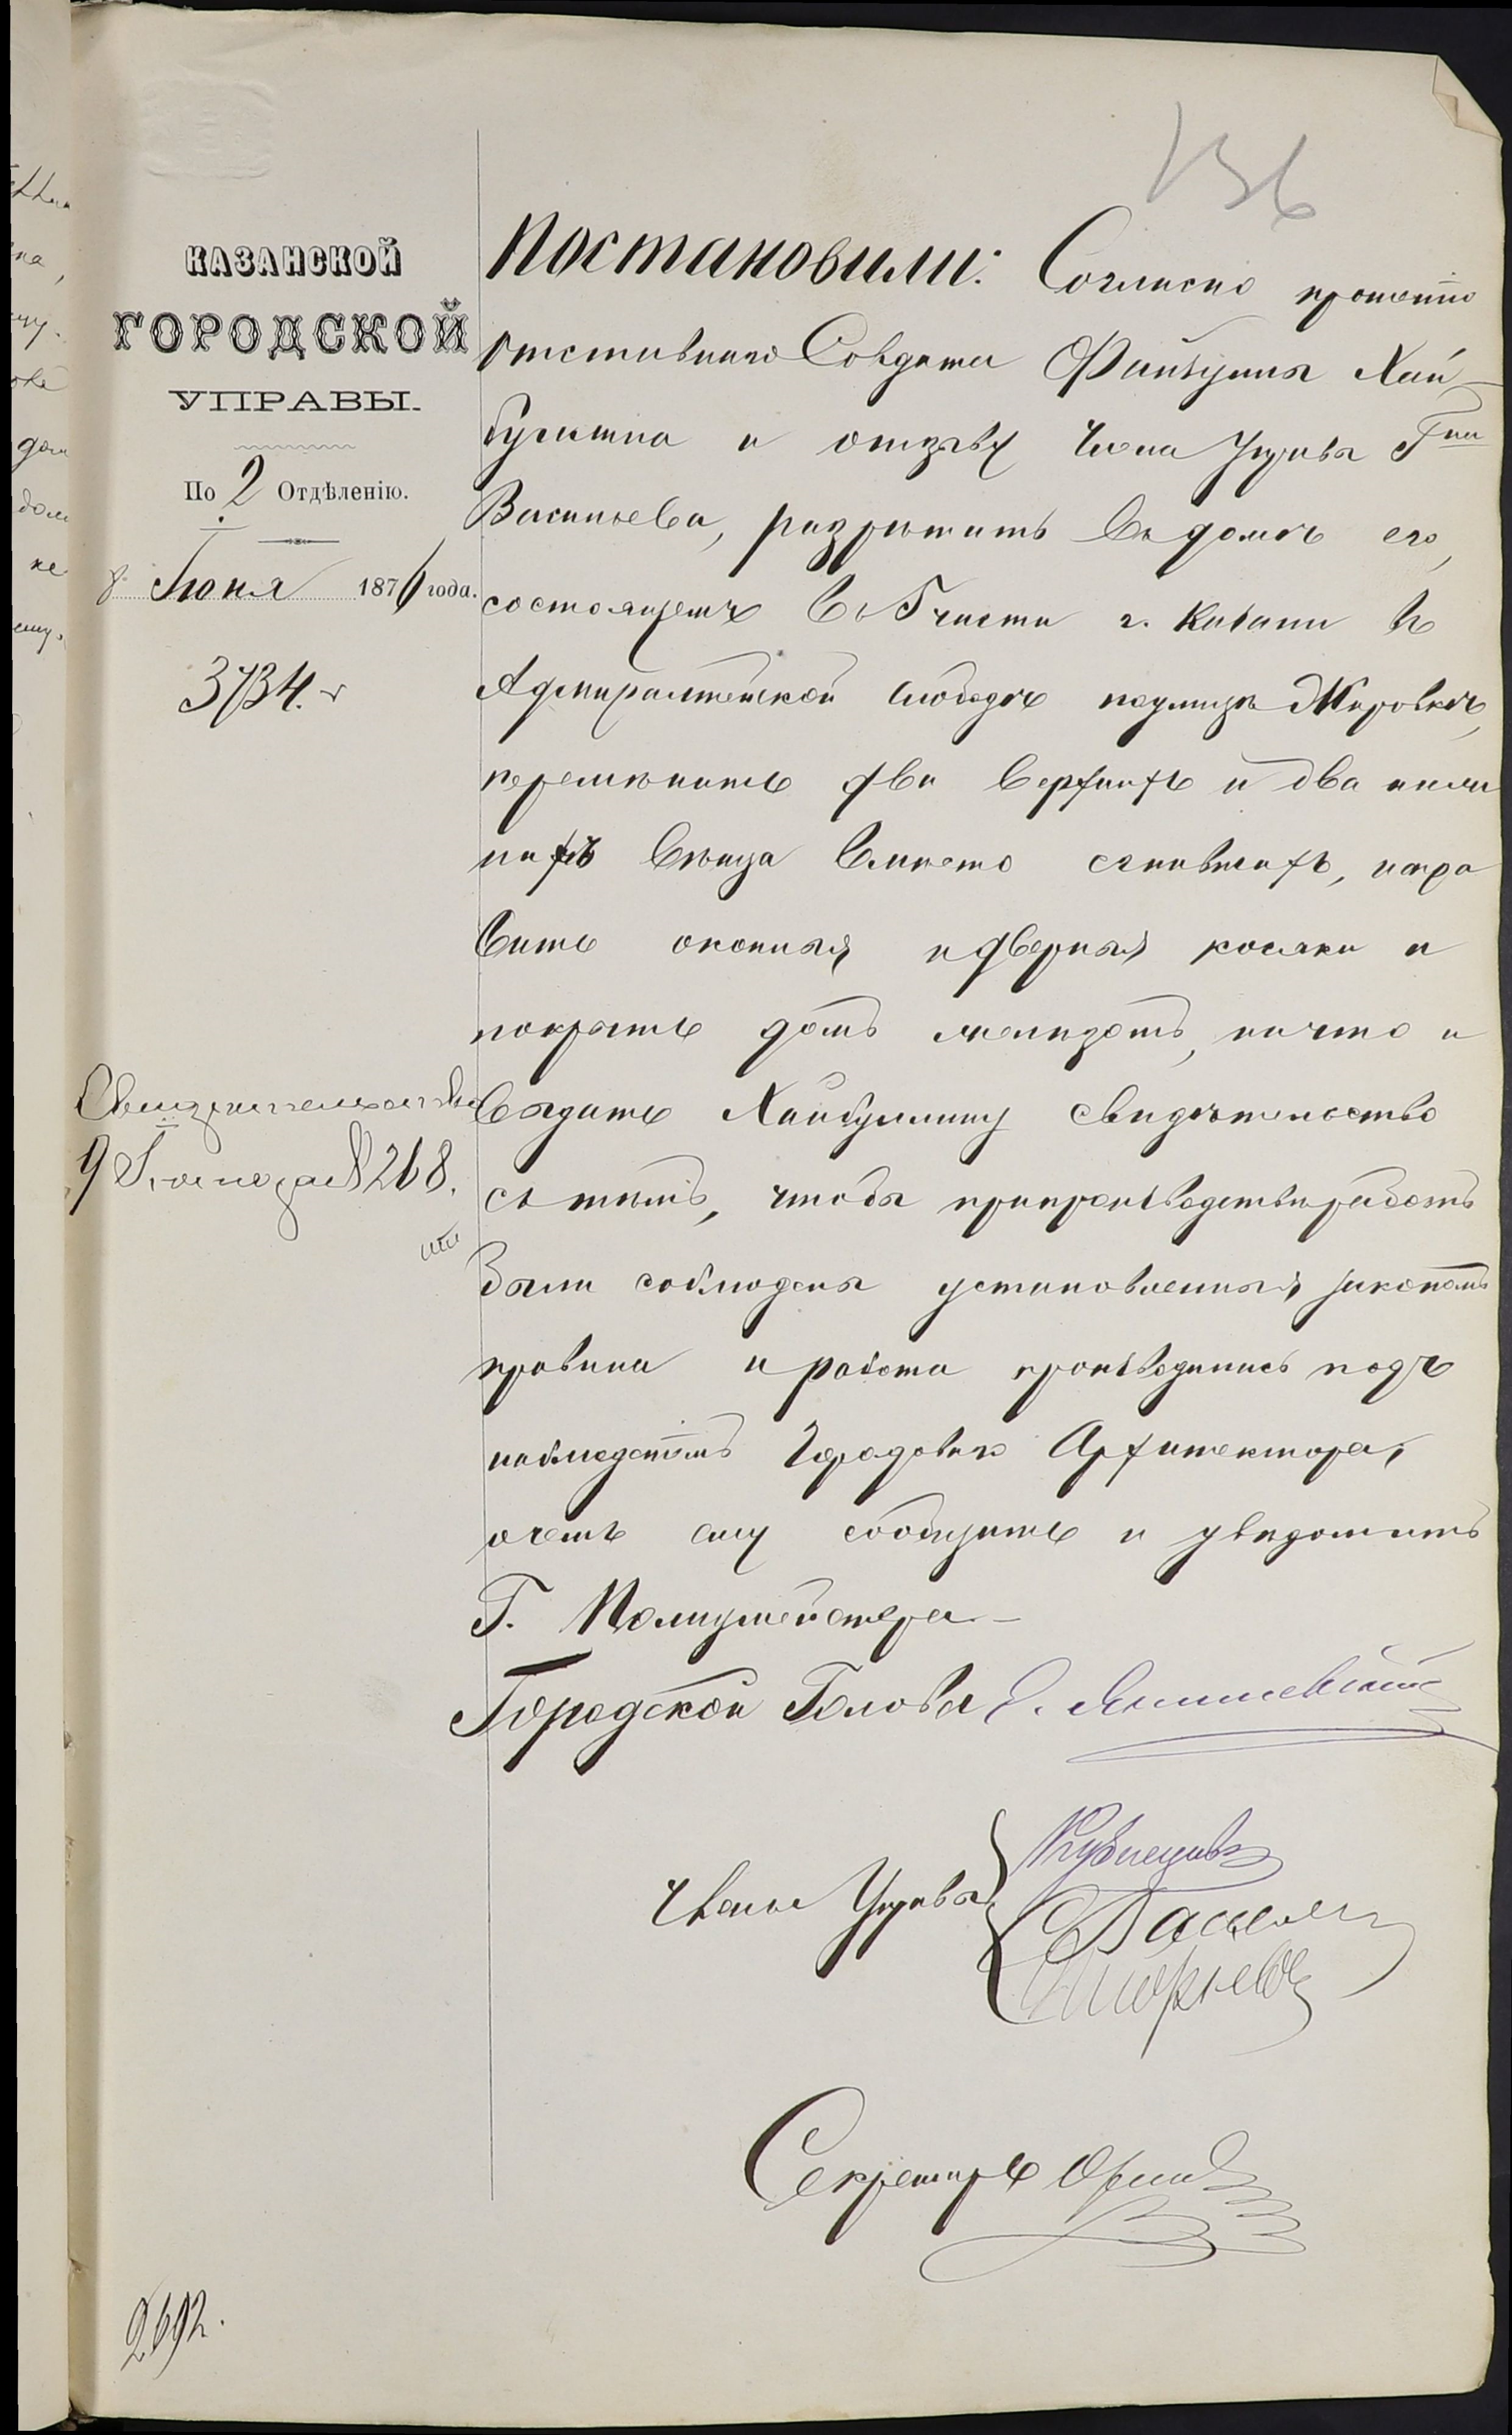 136
КАЗАНСКОЙ
ГОРОДСКОЙ
УПРАВЫ.
По 2 Отдѣленію.
8 Іюня 1876 года.
3734.
Свидѣтельство
9 Іюня за № 268.
Постановили: Согласно прошенію
отставнаго Солдата Файзуллы Хай-
буллина и отзыву Члена Управы Г-на
Васильева, разрѣшить въ домѣ его,
состоящемъ въ 5 части г. Казани въ
Адмиралтейской слободѣ по улицѣ Жировкѣ,
перемѣнить два верхнихъ и два ниж
нихъ вѣнца вмѣсто сгнившихъ, испра
вить оконныя и дверныя косяки и
покрыть домъ желѣзомъ, на что и
выдать Хайбуллину свидѣтельство
съ тѣмъ, чтобы при производствѣ работъ
были соблюдены установленныя закономъ
правила и работа производилась подъ
наблюденіемъ Городоваго Архитектора,
о чемъ ему сообщить и увѣдомить
Г. Полицмейстера.
Городской Голова Э. Янишевскій
Члены Управы
Кузнецовъ
Васильевъ
Секретарь
2692.